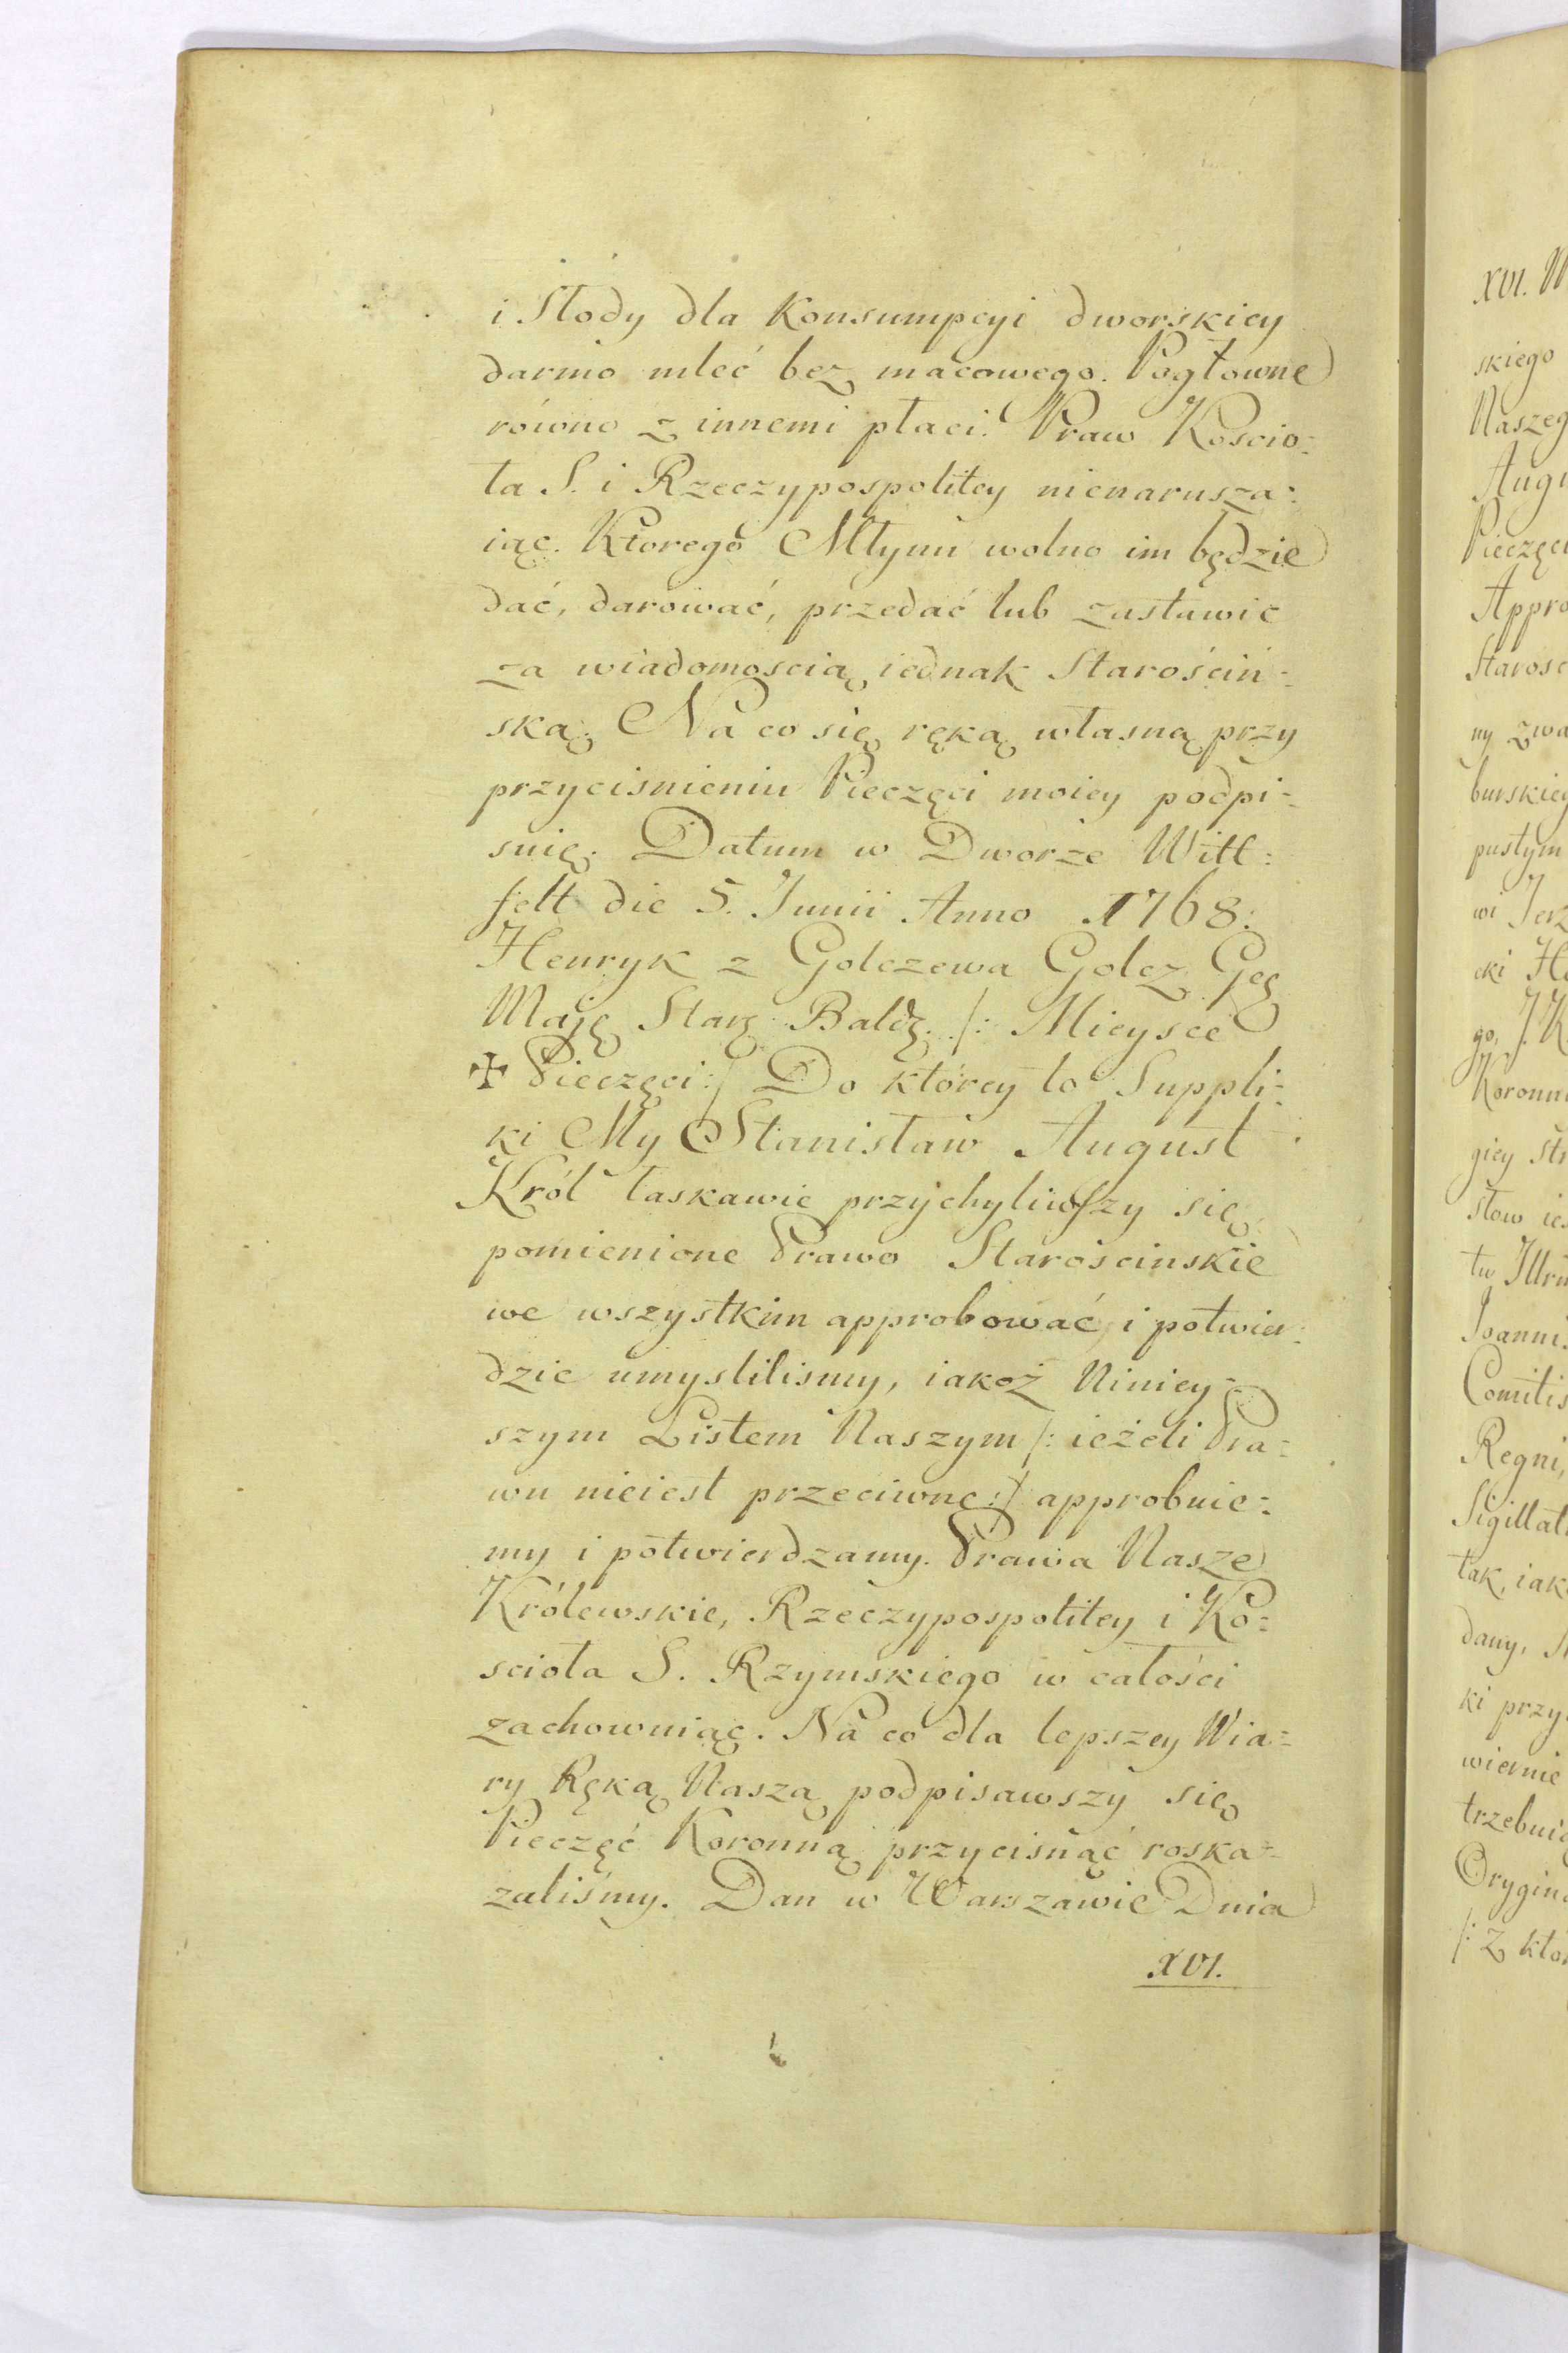 i Słody dla Konsumpcyi dworskiey
darmo mleć bez macowego. Pogłowne
równo z innemi płaci. Praw Koscio-
ła S. i Rzeczypospolitey nienarusza-
iąc. Ktorego Młynu wolno im będzie
dać, darować, przedać lub zastawić
za wiadomoscią iednak Starościń-
ską. Na co się ręką własną przy
przyciśnieniu Pieczęci moiey podpi-
suię. Datum w Dworze Witt-
felt die 5. Junii Anno 1768.
Henryk z Golczewa Golcz Gen
Maję Starę Baldę. /: Mieysce
✠ Pieczęci :/ Do którey to Suppli-
ki My Stanisław August
Król łaskawie przychyliwszy się
pomienione Prawo Starościnskie
we wszystkim approbować i potwier-
dzić umyslilismy, iakoż Niniey-
szym Listem Naszym /: ieżeli Pra-
wu nieiest przeciwne :/ approbuie-
my i potwierdzamy. Prawa Nasze
Królewskie, Rzeczypospolitey i Ko-
scioła S. Rzymskiego w całości
zachowuiąc. Na co dla lepszey Wia-
ry Ręką Naszą podpisawszy się
Pieczęć Koronną przycisnąć roska-
zaliśmy. Dan w Warszawie Dnia
XVI.
XVI.
skiego
Naszeg
Augu
Pieczęci
Appro
Starosc
ny zwa
burskieg
pustym
wi Jerz
cki
go, J. K.
Koronn
giey
słow ies
tu Illru
Joannis
Comitis
Regni,
Sigillat
tak, iak
dany,
ki przy
wiernie
trzebuią
Orygina
/: Z któr